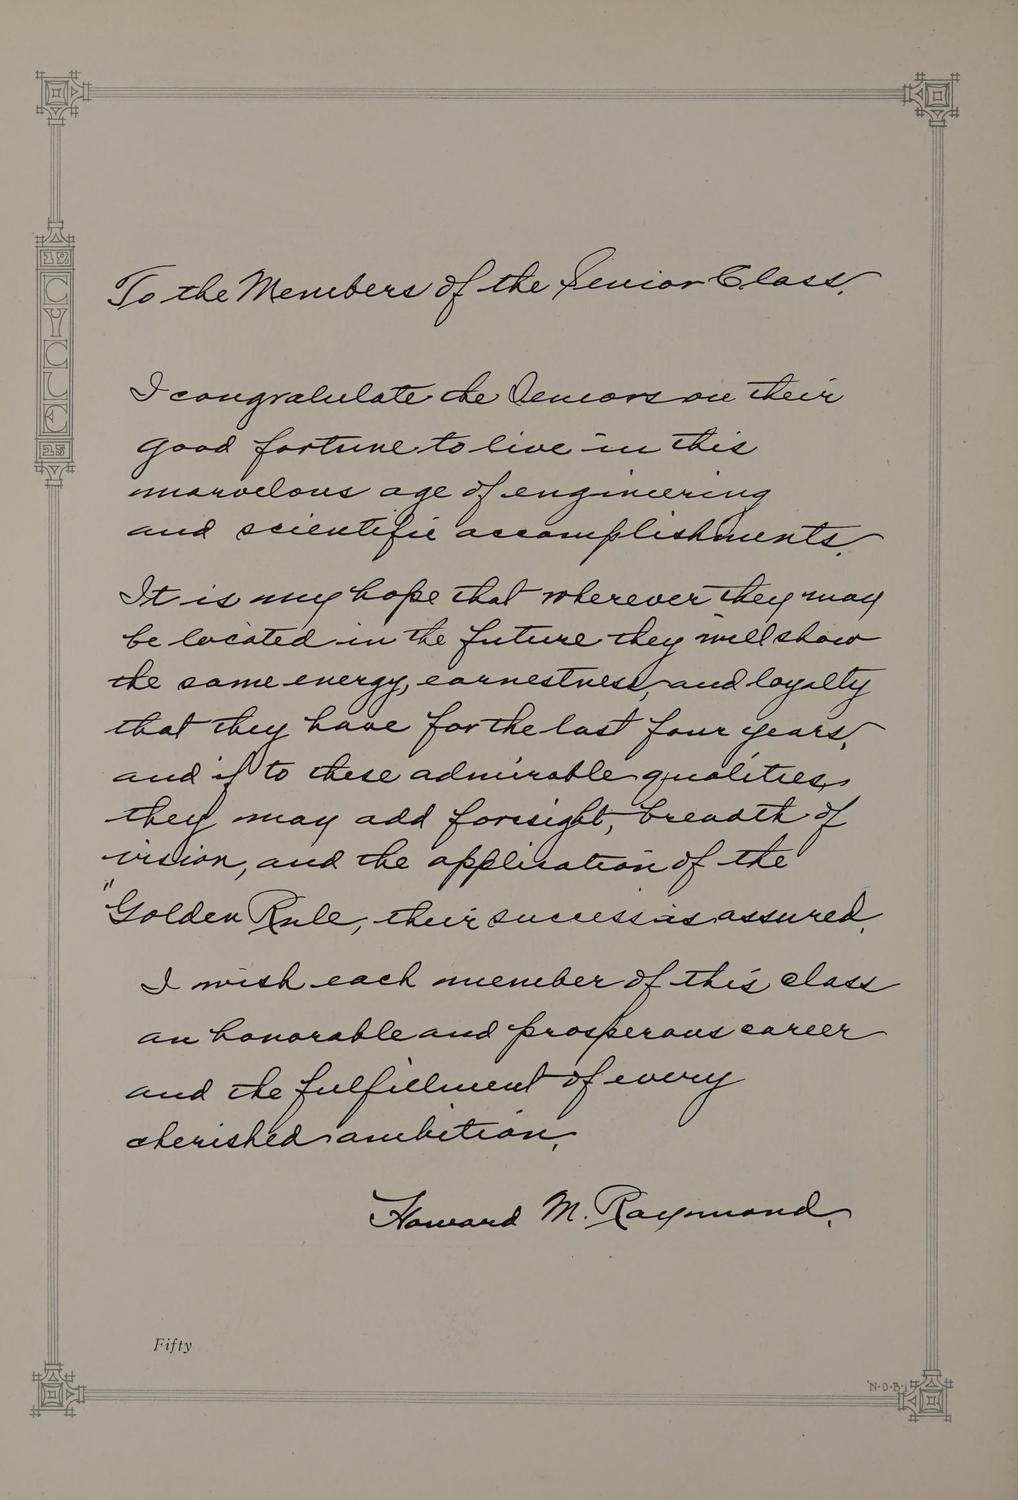 19
CYCLE
25
To the Members of the Senior Class.
I congratulate the Seniors on their
good fortune to live in this
marvelous age of engineering
and scientific accomplishments.
It is my hope that wherever they may
be located in the future they will show
the same energy, earnestness, and loyalty
that they have for the last four years,
and if to these admirable qualities,
they may add foresight, breadth of
vision, and the application of the
"Golden Rule, their success is assured.
I wish each member of this class
an honorable and prosperous career
and the fulfillment of every
cherished ambition.
Howard M. Raymond.
Fifty
N·D·B·